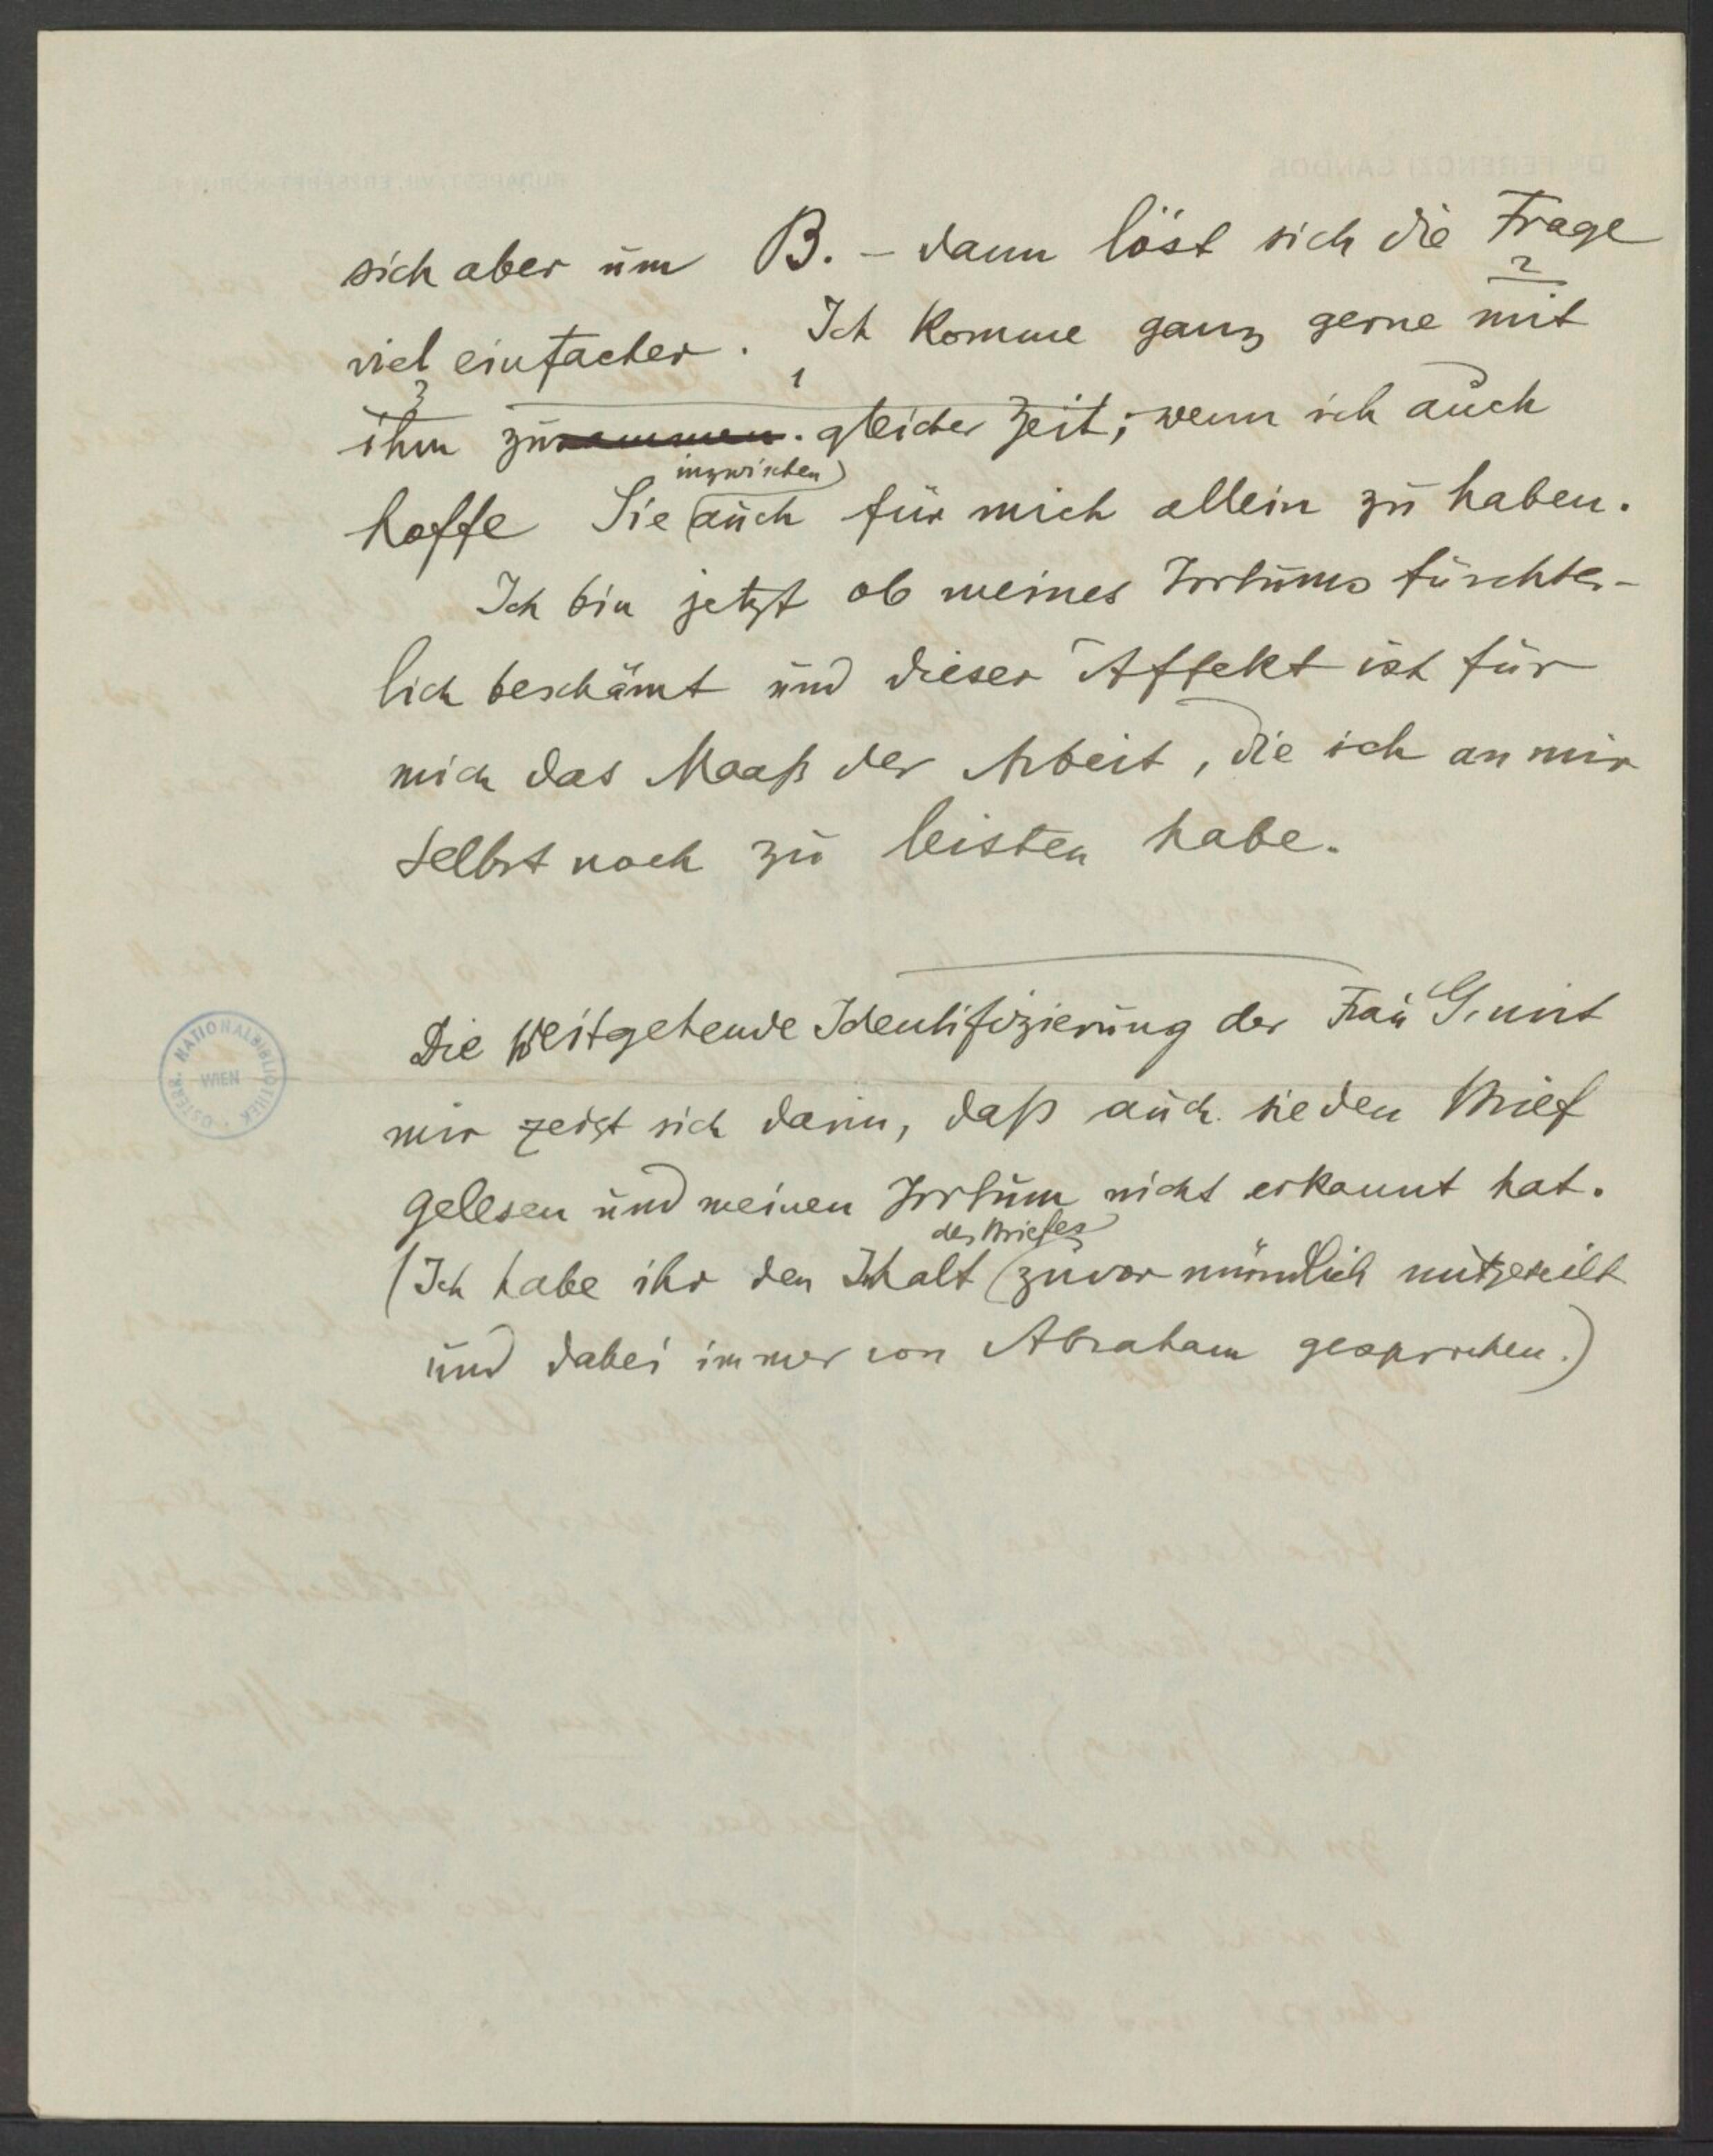 sich aber um B. – dann löst sich die Frage
viel einfacher. Ich komme ganz gerne mit
2
3
1
ihm zusammen. gleicher Zeit; wenn ich auch
inzwischen
hoffe Sie auch für mich allein zu haben.
Ich bin jetzt ob meines Irrtums fürchter-
lich beschämt und dieser Affekt ist für
mich das Maaß der Arbeit, die ich an mir
selbst noch zu leisten habe.
Die weitgehende Identifizierung der Frau G. mit
mir zeigt sich darin, daß auch sie den Brief
gelesen und meinen Irrtum nicht erkannt hat.
des Briefes
(Ich habe ihr den Inhalt zuvor mündlich mitgeteilt
und dabei immer von Abraham gesprochen.)
ÖSTERR. NATIONALBIBLIOTHEK
WIEN